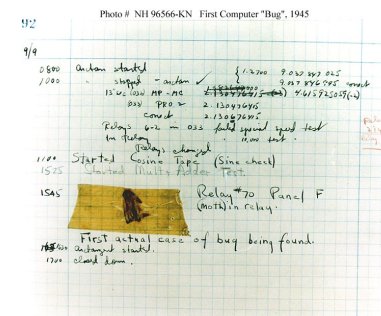 Photo # NH 96566-KN First Computer "Bug", 1945
92
9/9
0800 antan started
1000 " stopped - antan ✓ { 1.2700 9.037 847 025
9.037 846 995 correct
13"uc (032) MP - MC 4.615925059(-2)
(033) PRO 2 2.130476415
correct 2.130676415
Relays 6-2 in 033 failed special speed test
in Relay " 10.000 test.
Relays changed
1100 Started Cosine Tape (Sine check)
1525 Started Mult+Adder Test.
1545 Relay #70 Panel F
(moth) in relay.
First actual case of bug being found.
1630 antangent started.
1700 closed down.